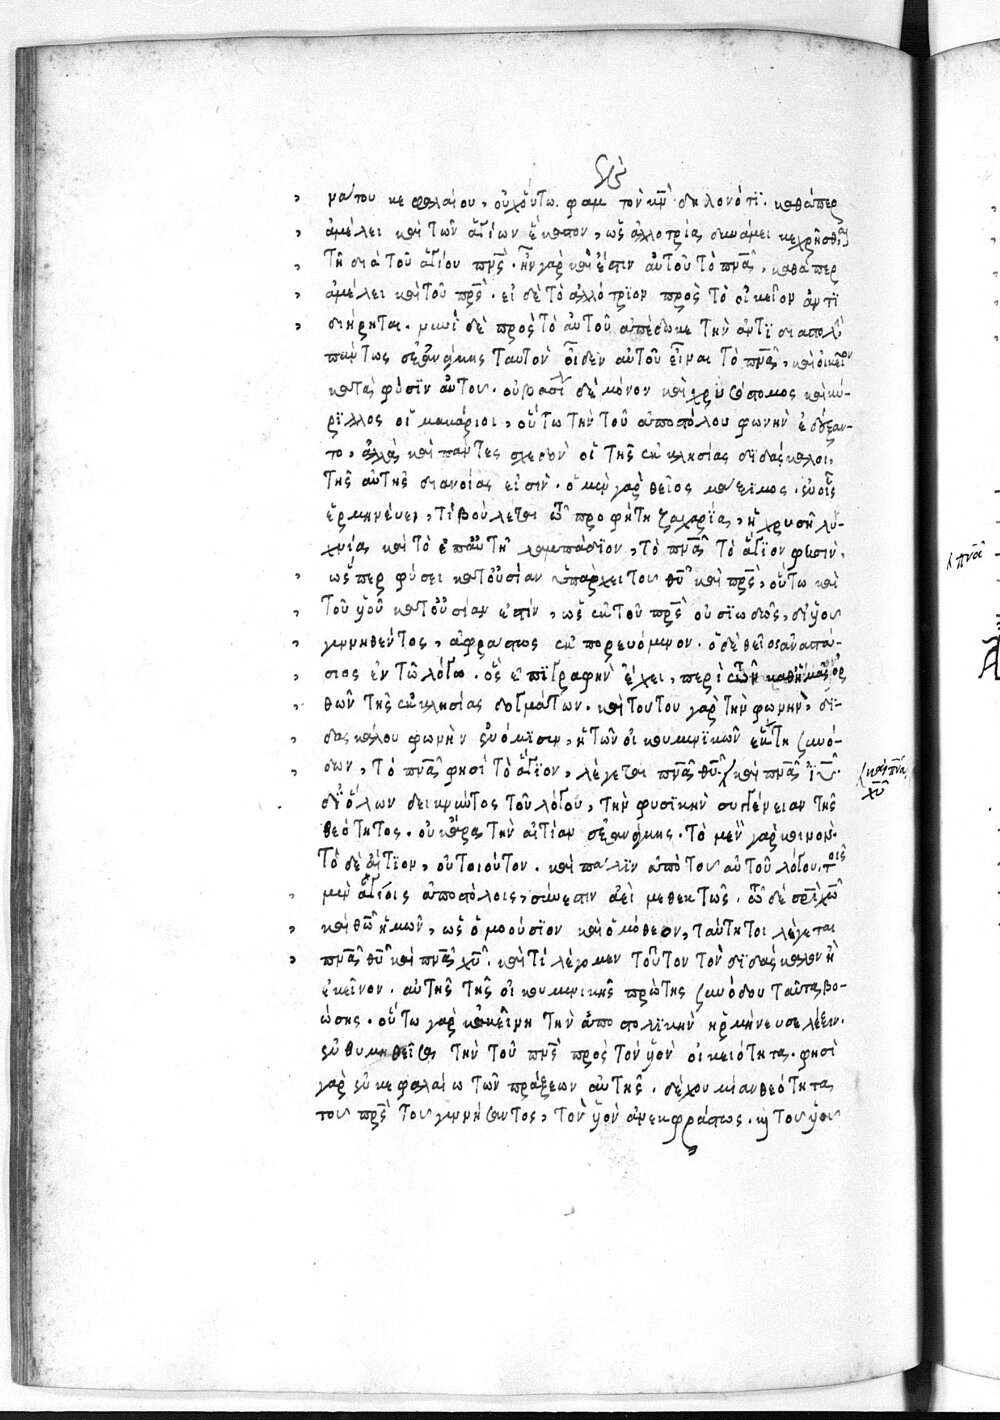 νάτου κεφαλαίου, οὐχ οὕτω φαμ τὸν κν̄ δηλονότι. καθάπερ
ἀμέλει καὶ τῶν ἁγίων ἕκαστον, ὡς ἀλλοτρία δυνάμει κεχρῆσθαι
τῆ διὰ τοῦ ἁγίου πνς̄. ἦν γὰρ καὶ ἔστιν αὐτοῦ τὸ πνᾶ, καθάπερ
ἀμέλει καὶ τοῦ πρς̄. εἰ δὲ τὸ ἀλλότριον πρὸς τὸ οἰκεῖον ἀντι
διήρηται. πρὸς τὸ αὐτοῦ ἀπέδωκε τὴν ἀντιδιαστολὴν
πάντως ἐξανάγκης ταυτὸν οἶδεν αὐτοῦ εἶναι τὸ πνᾶ, καὶ οἰκεῖον
κατὰ φύσιν αὐτου. οὐ βασί δὲ μόνον καὶ χρυσόστομος καὶ κύ-
ριλλος οἱ μακάριοι, οὕτω τὴν τοῦ ἀποστόλου φωνὴν ἐδέξαν-
το, ἀλλὰ καὶ πάντες σχεδὸν οἱ τῆς ἐκκλησίας διδάσκαλοι,
τῆς αὐτῆς διανοίας εἰσίν. ὁ μὲν γὰρ θεῖος μάξιμος ἐν οἷς
ἑρμηνεύει, τί βούλεται τῶ προφήτη ζαχαρία, ἡ χρυσῆ λυ-
χνία καὶ τὸ ἐπ αὐτῆ λαμπάδιον, τὸ πνᾶ τὸ ἅγιον φησίν,
ὥσπερ φύσει κατουσίαν ὑπάρχει του θῦ καὶ πρς̄, οὕτω καὶ
τοῦ υἱοῦ κατουσίαν ἐστίν, ὡς ἐκ τοῦ πρς̄ οὐσιωδῶς, δι υἱου
γεννηθέντος, ἀφράστως ἐκπορευόμενον. ὁ δὲ θεῖος ἀναστά-
σιος ἐν τῶ λόγω. ὃς ἐπιγραφὴν ἔχει, περὶ τῶν καθ ἡμᾶς ὀρ
θῶν τῆς ἐκκλησίας δογμάτων. καὶ τούτου γὰρ τὴν φωνὴν, δι-
δασκάλου φωνὴν ἐνόμισεν, ἡ τῶν οἰκουμενικῶν ἕκτη συνό-
δων, τὸ πνᾶ φησὶ τὸ ἅγιον, λέγεται πνᾶ θῦ, καὶ πνᾶ ἰῦ
καὶ πνᾶ
χῦ
δι ὅλων δεικνύντος τοῦ λόγου, τὴν φυσικὴν συγγένειαν τῆς
θεότητος. οὐκ ἄρα τὴν αἰτίαν ἐξανάγκης. τὸ μὲν γὰρ κοινόν.
τὸ δὲ αἴτιον, οὐ τοιοῦτον. καὶ πάλιν ἀπὸ του αὐτοῦ λόγου, τοῖς
μὲν ἁγίοις ἀποστόλοις, σύνεστιν ἀεὶ μεθεκτῶς. τῶ δὲ
καὶ θῶ ἡμῶν, ὡς ὁμοούσιον καὶ ὁμόθεον, ταύτητοι λέγεται
πνᾶ θῦ καὶ πνᾶ χῦ. καὶ τί λέγομεν τοῦτον τὸν διδάσκαλον ἢ
ἐκεῖνον. αὐτῆς τῆς οἰκουμενικῆς πρώτης συνόδου ταῦτα βο-
ώσης. οὕτω γὰρ κἀκείνη τὴν ἀποστολικὴν ἡρμήνευσε λέξιν.
ἐνθυμηθεῖσα τὴν τοῦ πνς̄ πρὸς τὸν υἱὸν οἰκειότητα. φησὶ
γὰρ ἐν κεφαλαίω τῶν πράξεων αὐτῆς. δέχου μίαν θεότητα
του πρς̄ του γεννήσαντος, τὸν υἱὸν ἀνεκφράστως. κ του υἱου